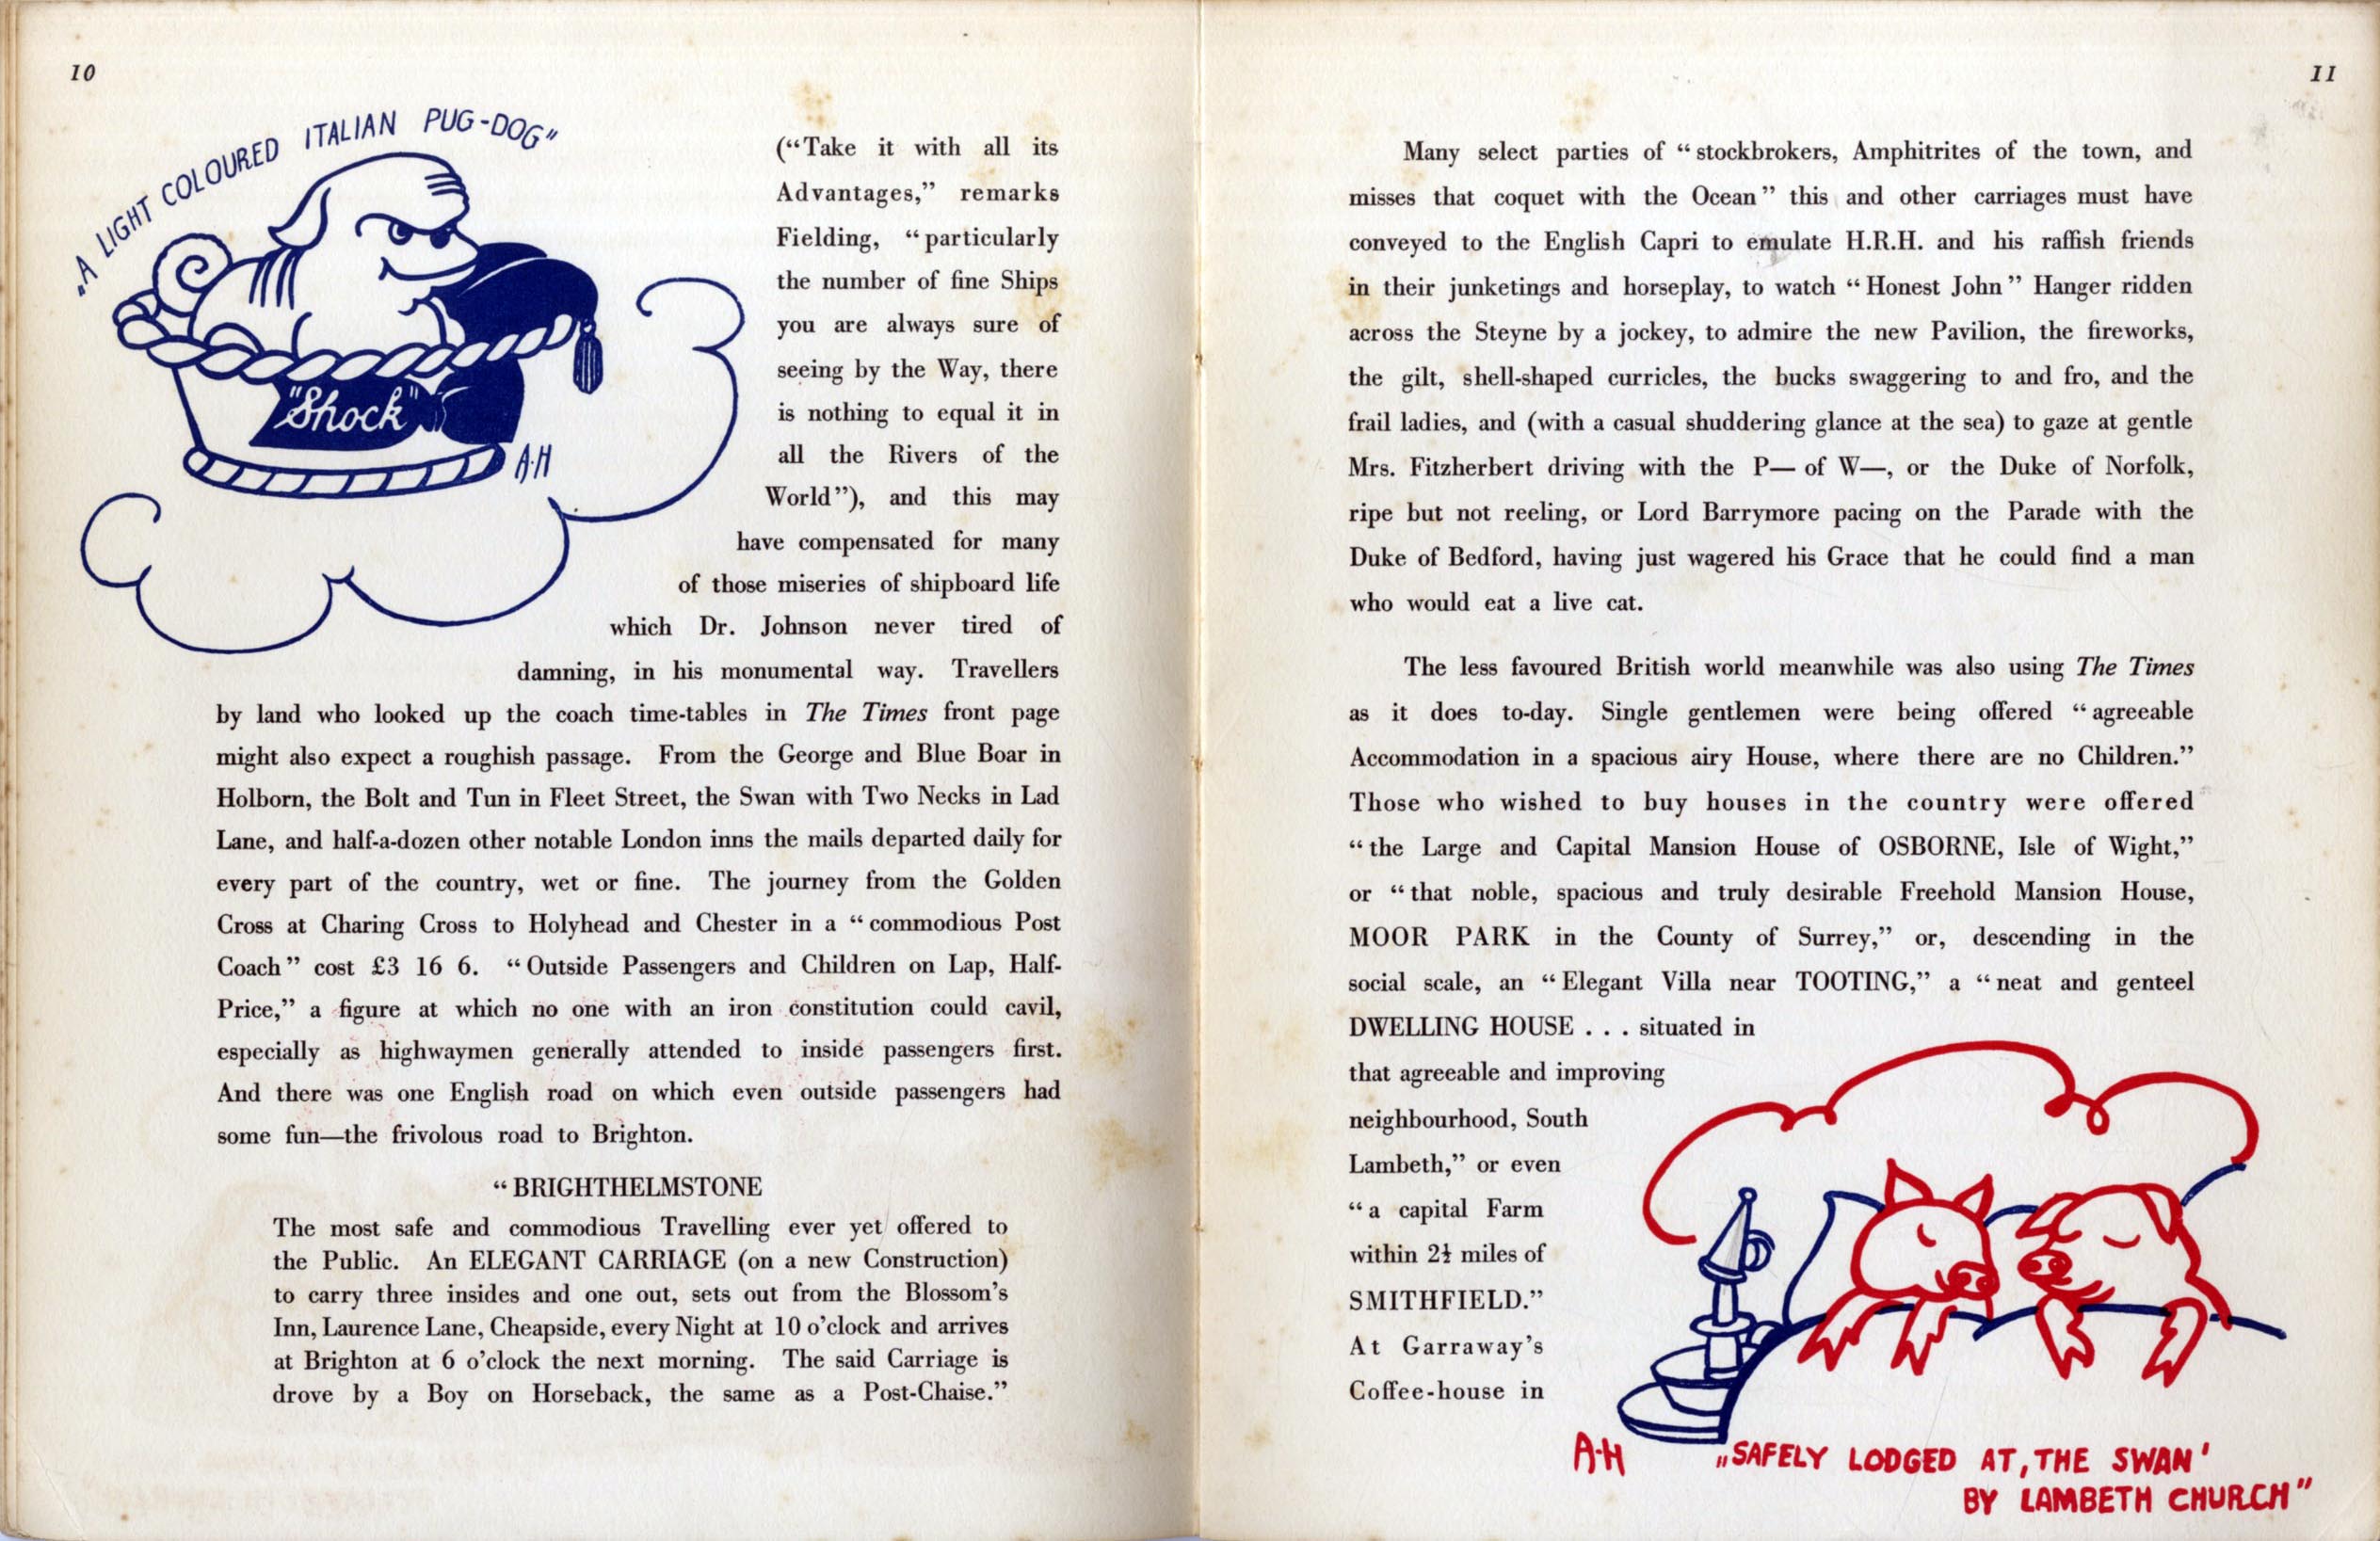 10
„A LIGHT COLOURED ITALIAN PUG-DOG"
"Shock"
A·H
(“Take it with all its
Advantages,” remarks
Fielding, “particularly
the number of fine Ships
you are always sure of
seeing by the Way, there
is nothing to equal it in
all the Rivers of the
World”), and this may
have compensated for many
of those miseries of shipboard life
which Dr. Johnson never tired of
damning, in his monumental way. Travellers
by land who looked up the coach time-tables in The Times front page
might also expect a roughish passage. From the George and Blue Boar in
Holborn, the Bolt and Tun in Fleet Street, the Swan with Two Necks in Lad
Lane, and half-a-dozen other notable London inns the mails departed daily for
every part of the country, wet or fine. The journey from the Golden
Cross at Charing Cross to Holyhead and Chester in a “commodious Post
Coach” cost £3 16 6. “Outside Passengers and Children on Lap, Half-
Price,” a figure at which no one with an iron constitution could cavil,
especially as highwaymen generally attended to inside passengers first.
And there was one English road on which even outside passengers had
some fun—the frivolous road to Brighton.
“BRIGHTHELMSTONE
The most safe and commodious Travelling ever yet offered to
the Public. An ELEGANT CARRIAGE (on a new Construction)
to carry three insides and one out, sets out from the Blossom’s
Inn, Laurence Lane, Cheapside, every Night at 10 o’clock and arrives
at Brighton at 6 o’clock the next morning. The said Carriage is
drove by a Boy on Horseback, the same as a Post-Chaise.”
11
Many select parties of “stockbrokers, Amphitrites of the town, and
misses that coquet with the Ocean” this and other carriages must have
conveyed to the English Capri to emulate H.R.H. and his raffish friends
in their junketings and horseplay, to watch “Honest John” Hanger ridden
across the Steyne by a jockey, to admire the new Pavilion, the fireworks,
the gilt, shell-shaped curricles, the bucks swaggering to and fro, and the
frail ladies, and (with a casual shuddering glance at the sea) to gaze at gentle
Mrs. Fitzherbert driving with the P— of W—, or the Duke of Norfolk,
ripe but not reeling, or Lord Barrymore pacing on the Parade with the
Duke of Bedford, having just wagered his Grace that he could find a man
who would eat a live cat.
The less favoured British world meanwhile was also using The Times
as it does to-day. Single gentlemen were being offered “agreeable
Accommodation in a spacious airy House, where there are no Children.”
Those who wished to buy houses in the country were offered
“the Large and Capital Mansion House of OSBORNE, Isle of Wight,”
or “that noble, spacious and truly desirable Freehold Mansion House,
MOOR PARK in the County of Surrey,” or, descending in the
social scale, an “Elegant Villa near TOOTING,” a “neat and genteel
DWELLING HOUSE . . . situated in
that agreeable and improving
neighbourhood, South
Lambeth,” or even
“a capital Farm
within 2½ miles of
SMITHFIELD.”
At Garraway’s
Coffee-house in
A·H
„SAFELY LODGED AT ,THE SWAN'
BY LAMBETH CHURCH"